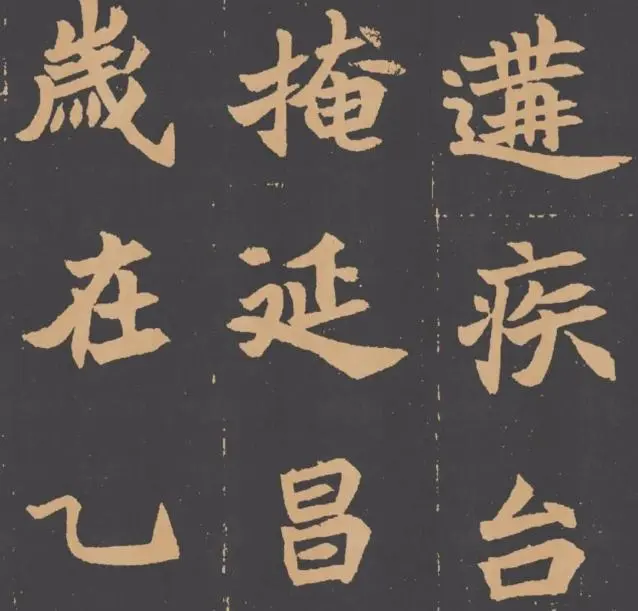 遘疾台
掩延昌
歲在乙